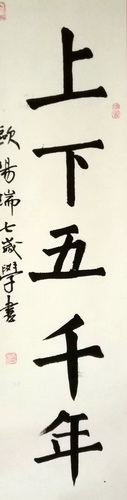 上下五千年
歐陽瑞七歲學書